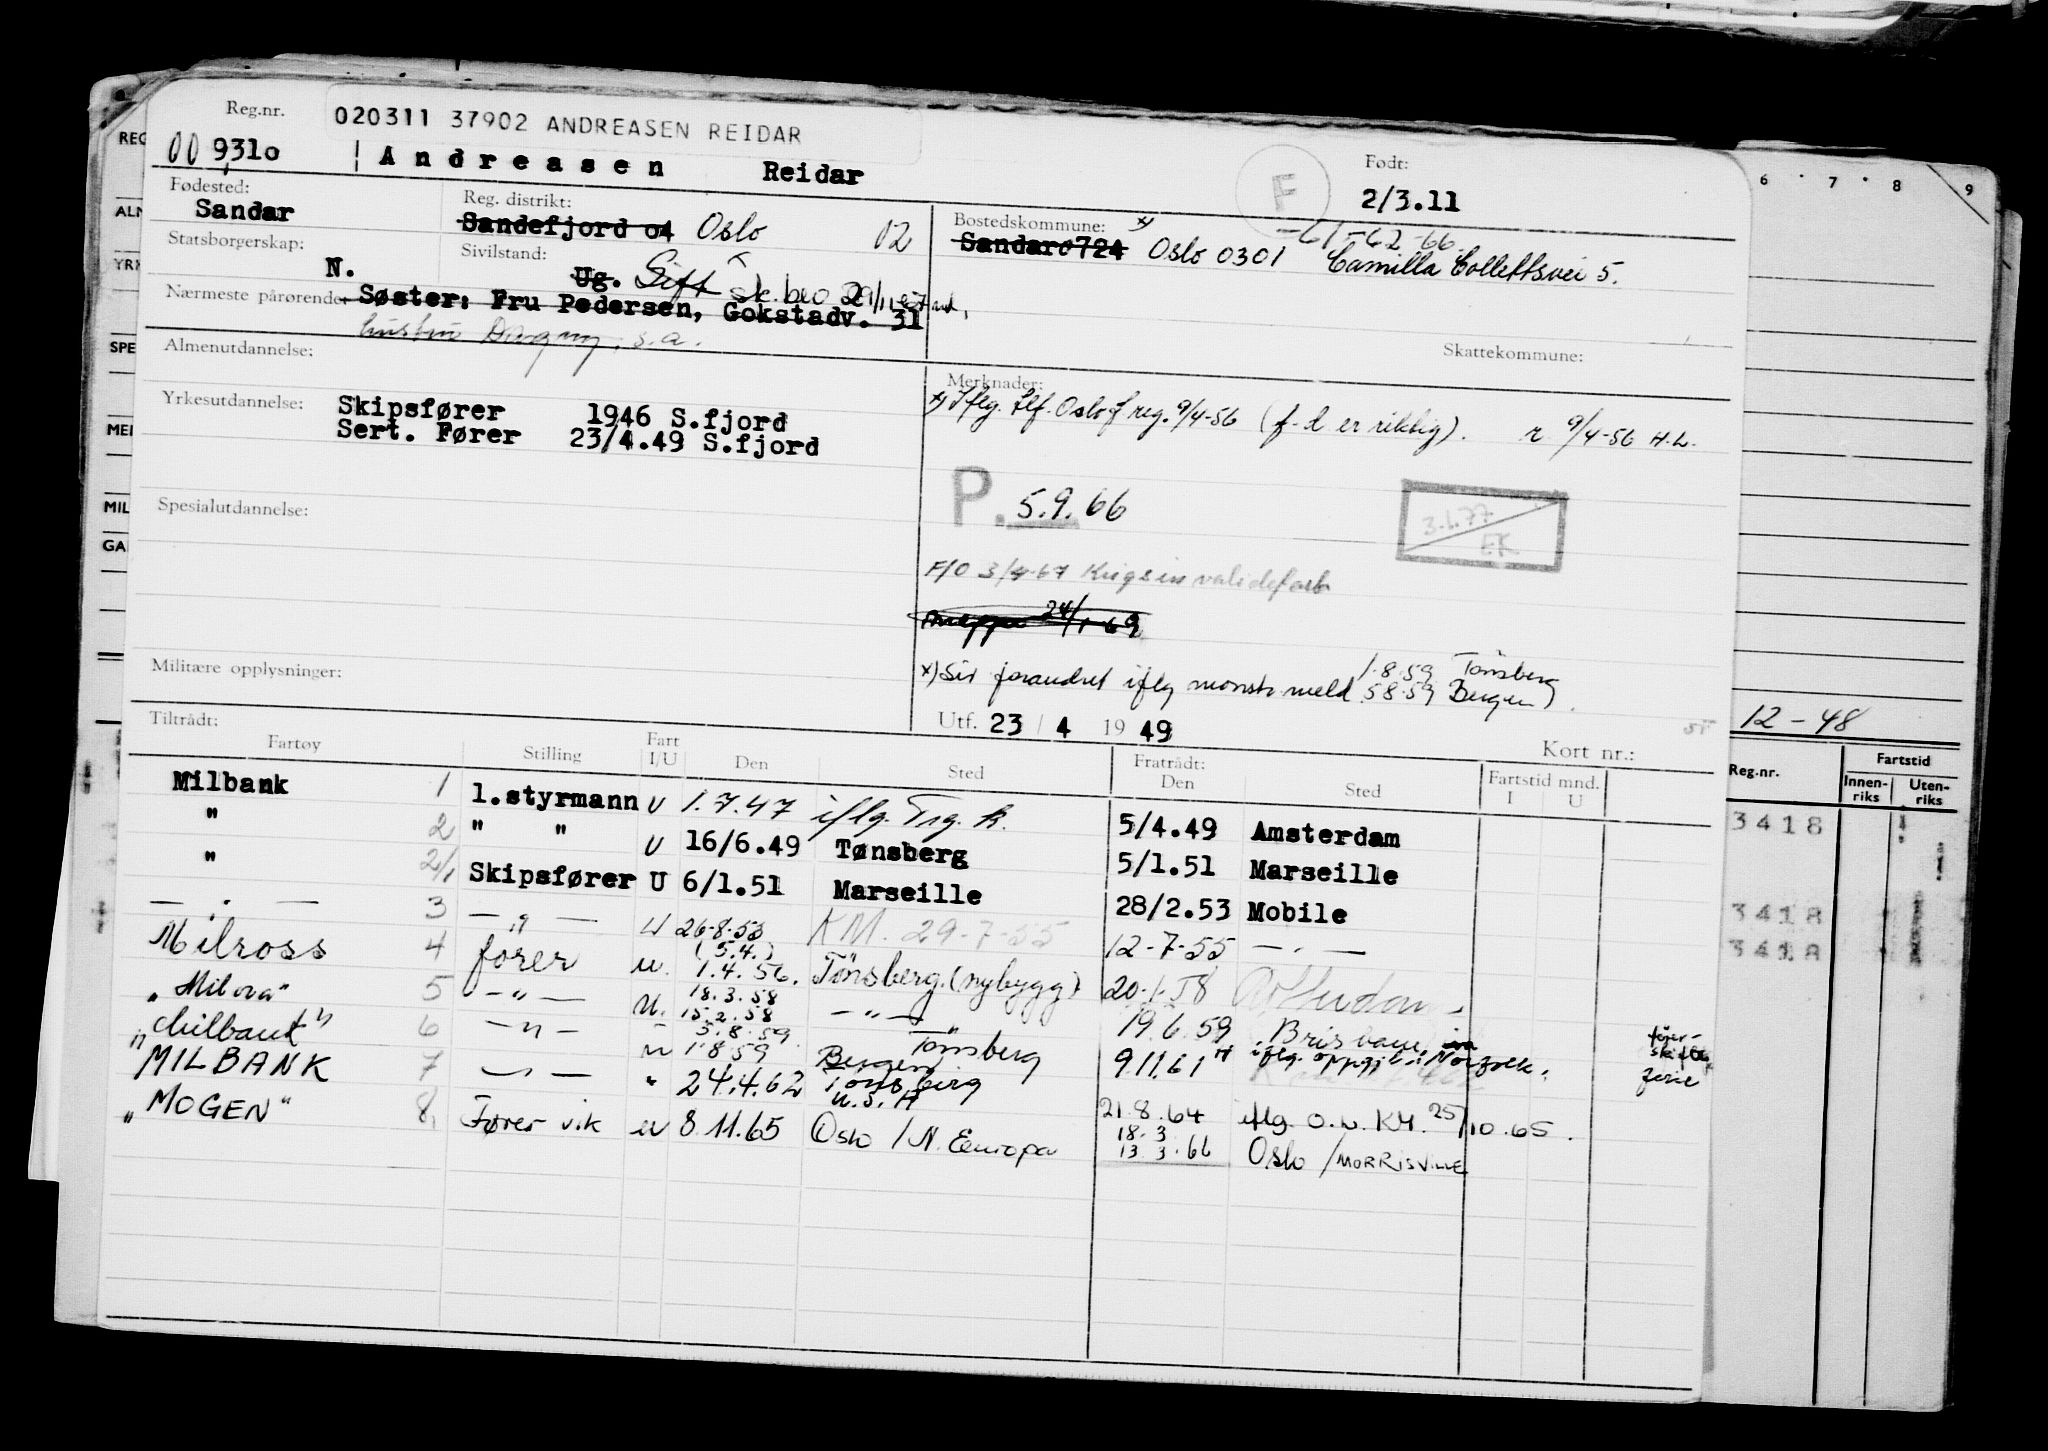 Reg.nr.
020311 37902 ANDREASEN REIDAR
00 9310 Andreasen Reidar
Født:
2/3.11
F
Fødested:
Sandar
Reg. distrikt:
Sandefjord 04 Oslo 02
Bostedskommune: x)
Sandar 0724 Oslo 0301 Camilla Collettsvei 5.
-61-62-66
Statsborgerskap:
N.
Sivilstand:
Ug. Gift
Nærmeste pårørende: Søster: Fru Pedersen, Gokstadv. 31
hustru Dagny, s.a.
Almenutdannelse:
Skattekommune:
Yrkesutdannelse:
Skipsfører 1946 S.fjord
Sert. Fører 23/4.49 S.fjord
Merknader:
x) Iflg. tlf. Oslo f reg. 9/4-56 (f.d er riktig). r 9/4-56 H.L.
P. 5.9.66
3.1.77
EK
Spesialutdannelse:
F/O 3/4-67 Krigsinvalidesak
mappe 24/1-69
Militære opplysninger:
x) Siv forandret iflg mønstr meld. 1.8.59 Tønsberg
5.8.59 Bergen).
Utf. 23/4 1949
Kort nr.:
Tiltrådt:
Fartøy Stilling Fart I/U Den Sted Fratrådt: Den Sted Fartstid mnd. I U
Milbank 1 1.styrmann U 1.7.47 iflg. Trg. k. 5/4.49 Amsterdam
" 2 " " U 16/6.49 Tønsberg 5/1.51 Marseille
" 2/1 Skipsfører U 6/1.51 Marseille 28/2.53 Mobile
— " — 3 — " — U 26-8-53 KM. 29-7-55 12-7-55 — " —
Milross 4 fører u. (5.4.) 1.4.56. Tønsberg.(nybygg) 20.1.58 Rotterdam
"Milova" 5 — " — u. 18.3.58 15.2.58 — " — 19.6.59 Brisbane
"Milbank" 6 — " — 5.8.59 1.8.59 Tønsberg Bergen 9.11.61 iflg. oppg. Norfolk.
fører-
ferie
MILBANK 7 — " — " 24.4.62 Tønsberg 21.8.64 iflg. o.v. KM. 25/10.65.
"MOGEN" 8 Fører vik u 8.11.65 Oslo / N. Europa 18.3. 13.3.66 Oslo / MORRISVILLE
REG
ALM
YRK
SPE
MIL
6 7 8 9
12-48
Reg.nr.
Fartstid
Innen-riks
Uten-riks
3418
3418
3418